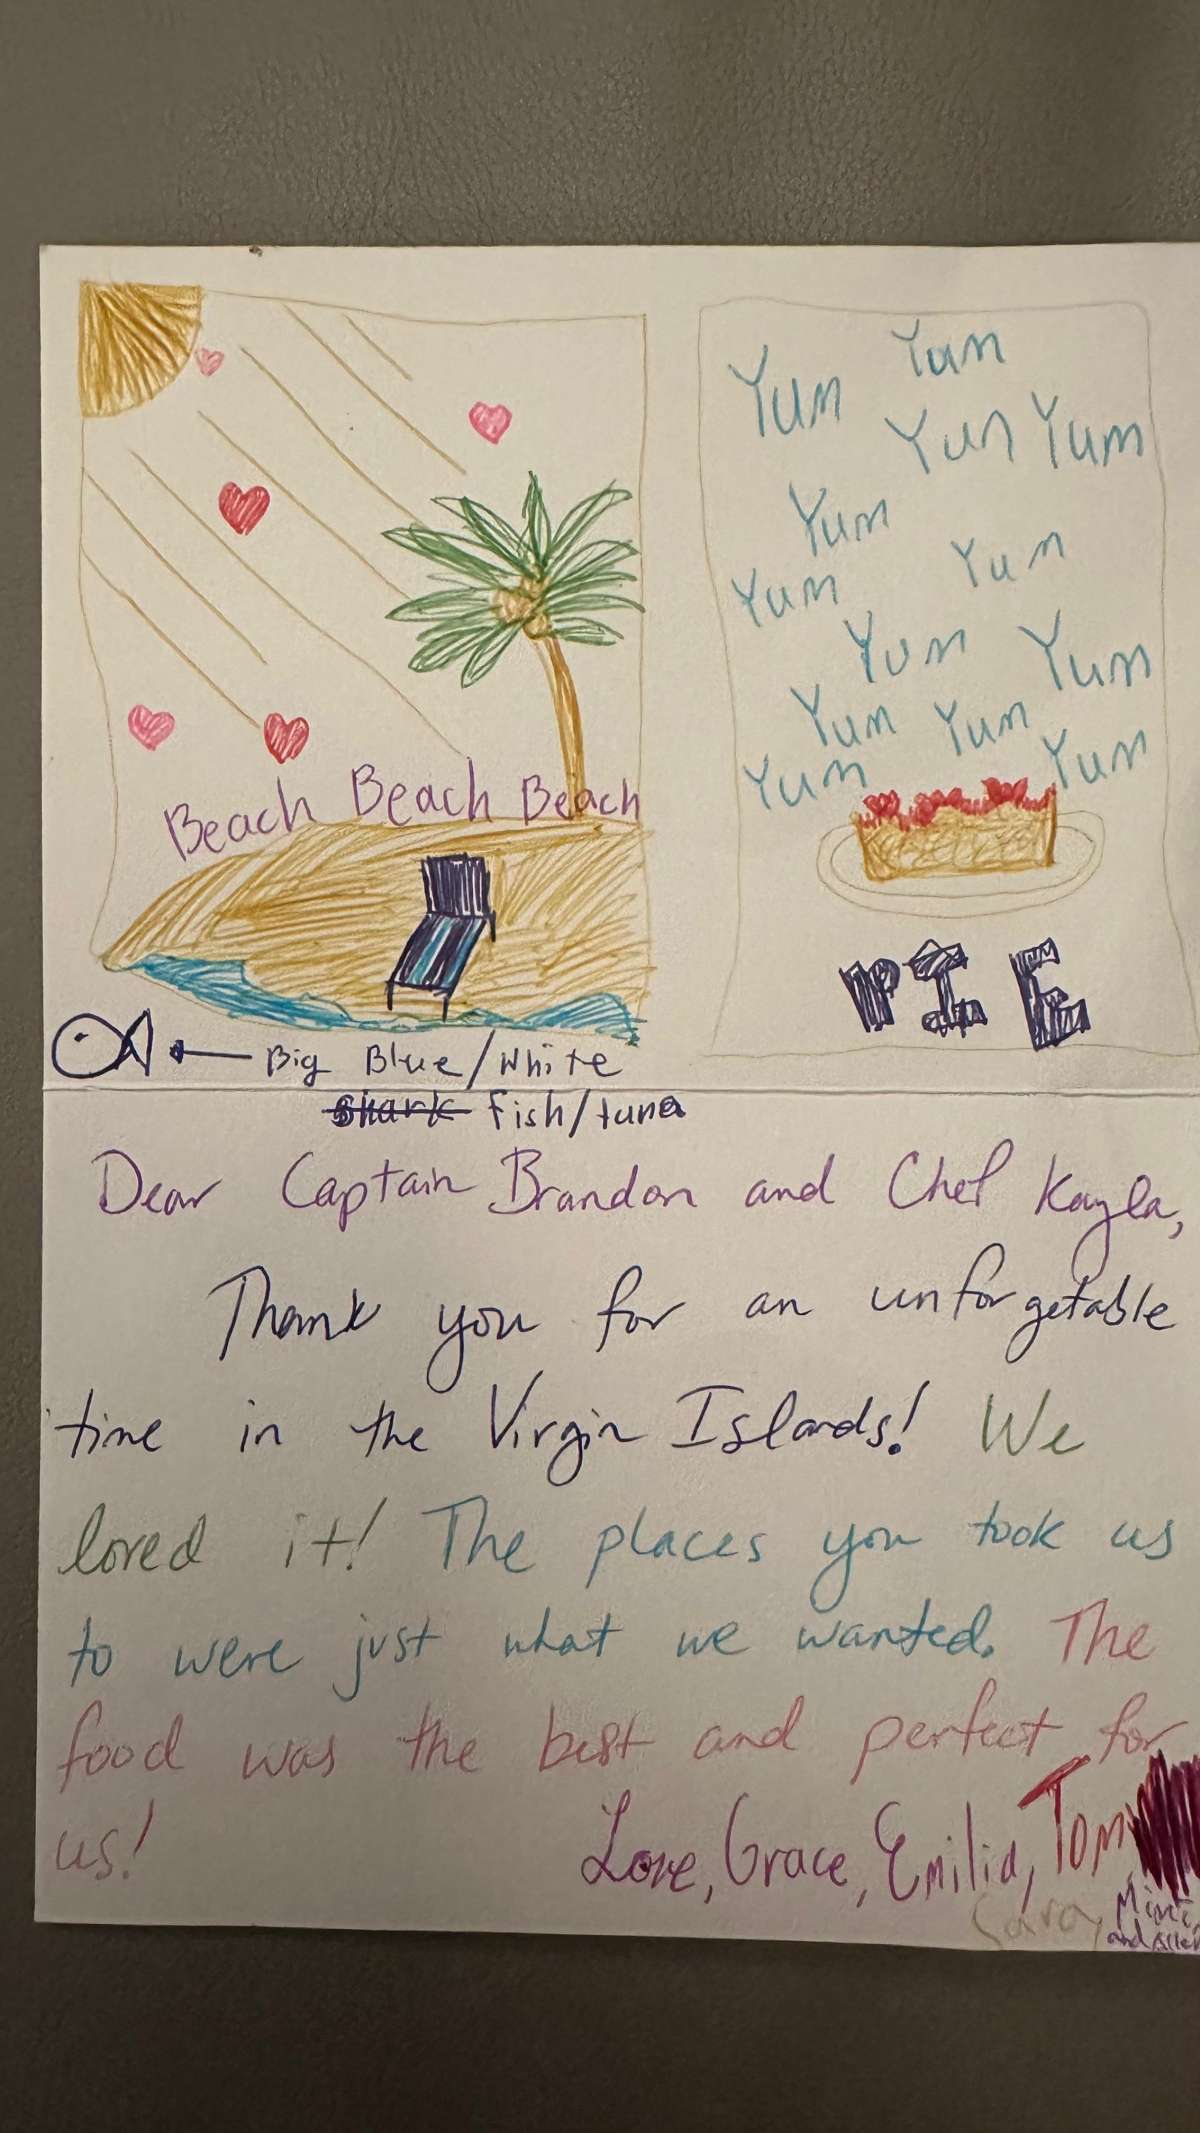 Beach Beach Beach
Big Blue/White
shark fish/tuna
Yum
Yum
Yum Yum
Yum
Yum
Yum
Yum Yum
Yum Yum
Yum Yum
PIE
Dear Captain Brandon and Chef Kayla,
Thank you for an unforgetable
time in the Virgin Islands! We
loved it! The places you took us
to were just what we wanted. The
food was the best and perfect for
us!
Love, Grace, Emilia, Tom
Sara,
and